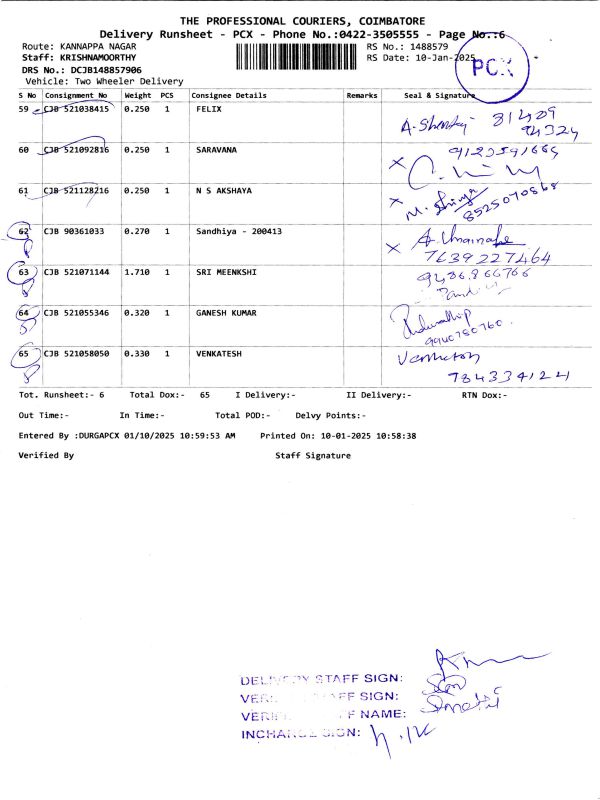 THE PROFESSIONAL COURIERS, COIMBATORE
Delivery Runsheet - PCX - Phone No.:0422-3505555 - Page No.:6
Route: KANNAPPA NAGAR RS No.: 1488579
Staff: KRISHNAMOORTHY RS Date: 10-Jan-2025
DRS No.: DCJB148857906
PCX
Vehicle: Two Wheeler Delivery
S No Consignment No Weight PCS Consignee Details Remarks Seal & Signature
59 CJB 521038415 0.250 1 FELIX
60 CJB 521092816 0.250 1 SARAVANA
61 CJB 521128216 0.250 1 N S AKSHAYA
8525070868
62 CJB 90361033 0.270 1 Sandhiya - 200413
7639227464
63 CJB 521071144 1.710 1 SRI MEENKSHI
9486866766
64 CJB 521055346 0.320 1 GANESH KUMAR
9940750760
65 CJB 521058050 0.330 1 VENKATESH
7843341221
Tot. Runsheet:- 6 Total Dox:- 65 I Delivery:- II Delivery:- RTN Dox:-
Out Time:- In Time:- Total POD:- Delvy Points:-
Entered By :DURGAPCX 01/10/2025 10:59:53 AM Printed On: 10-01-2025 10:58:38
Verified By Staff Signature
DELIVERY STAFF SIGN:
STAFF SIGN:
NAME:
SIGN: